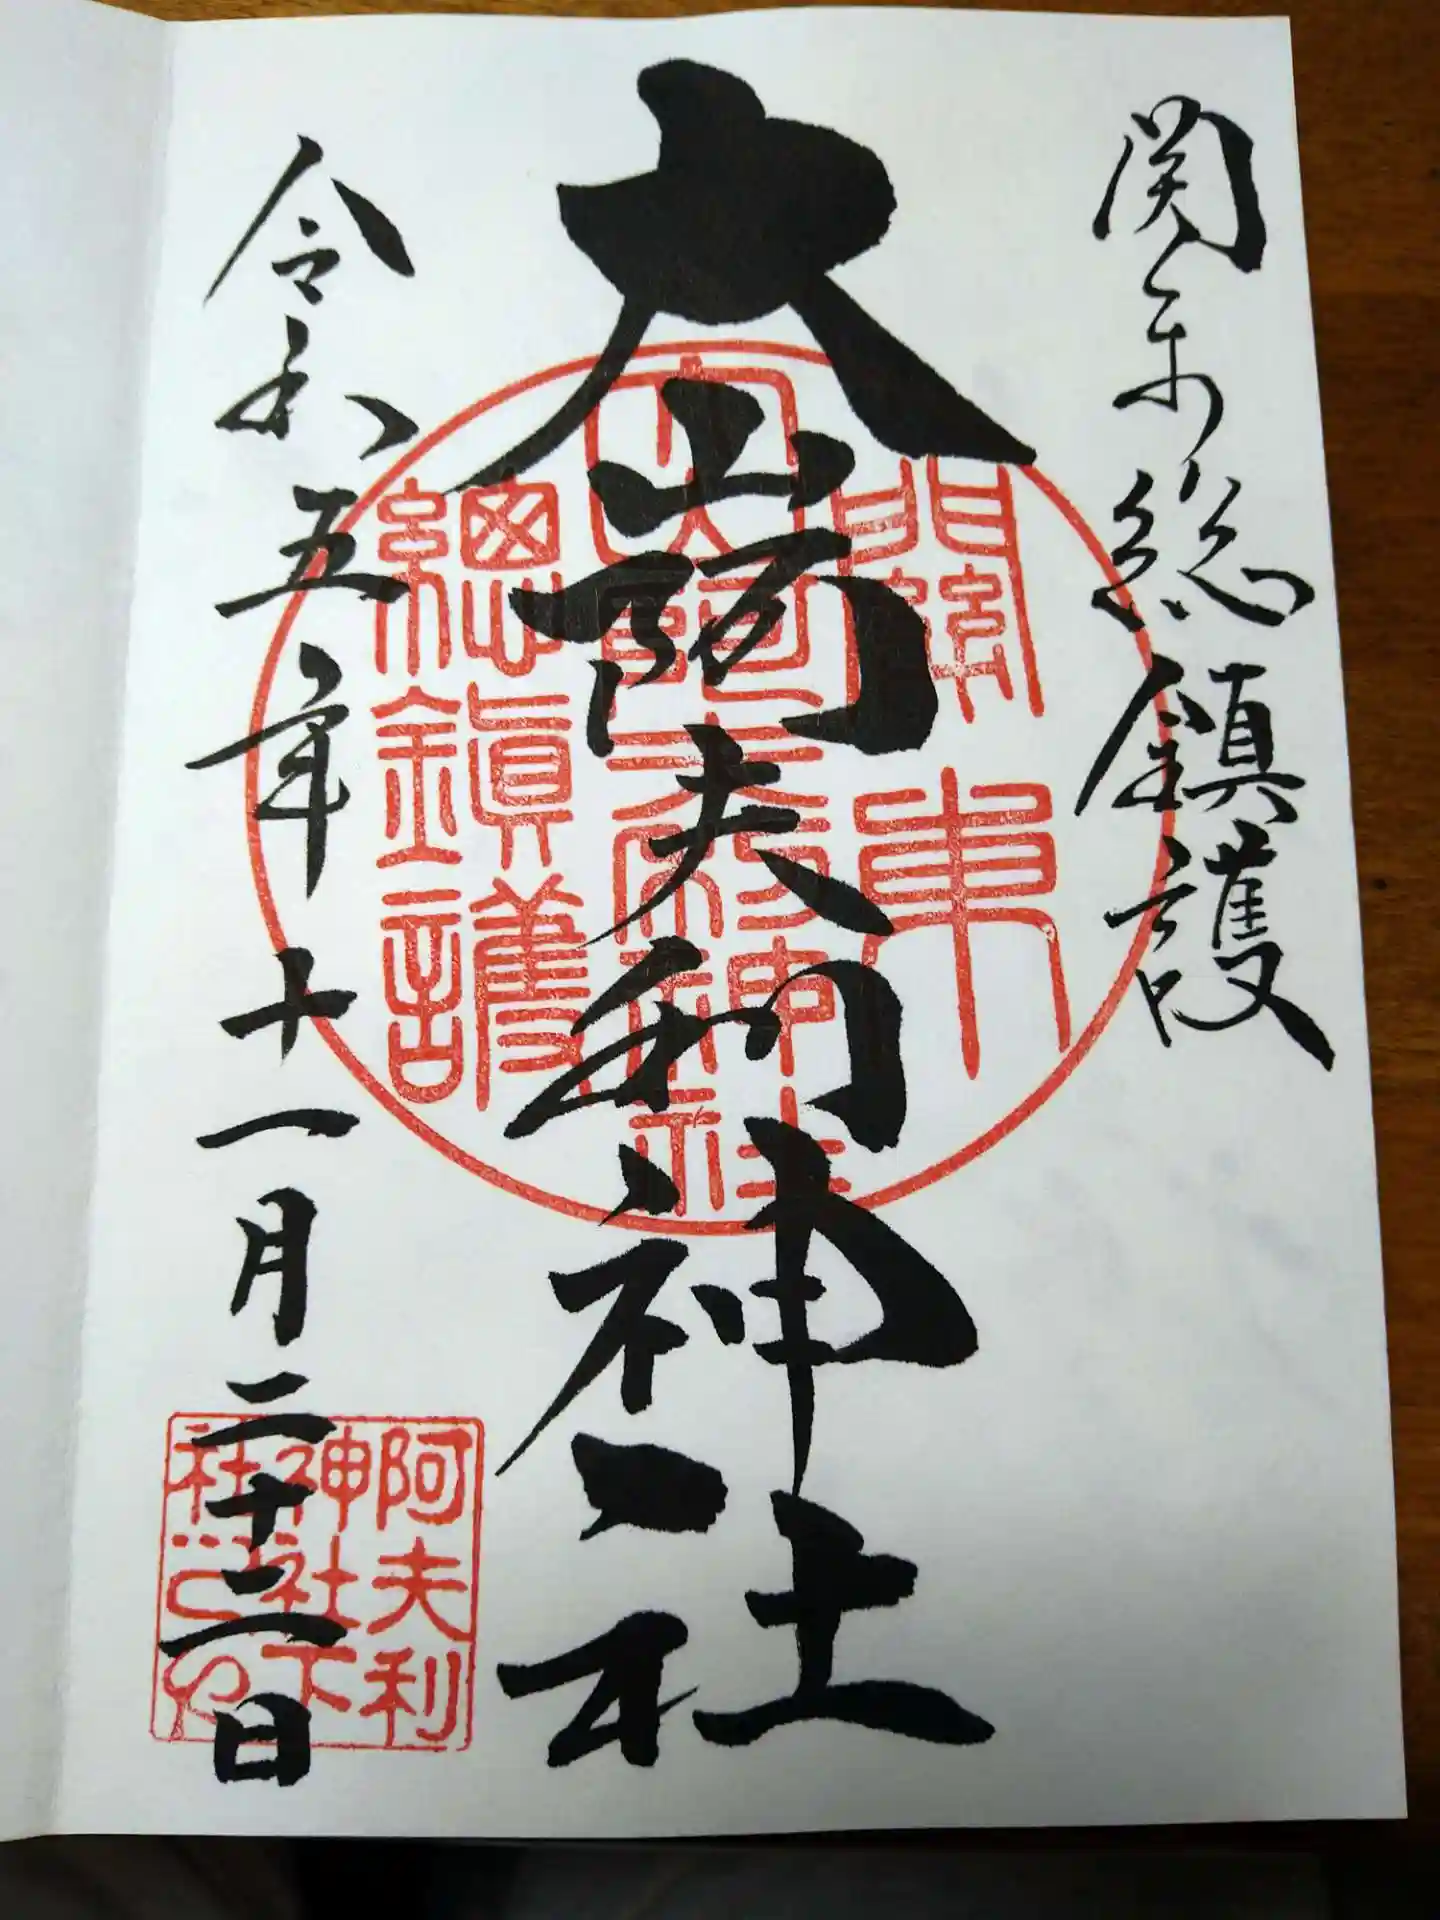 関東総鎮護
大山阿夫利神社
令和五年十一月二十二日
關東
大山阿夫利神社
總鎮護
阿夫利
神社下
社之印